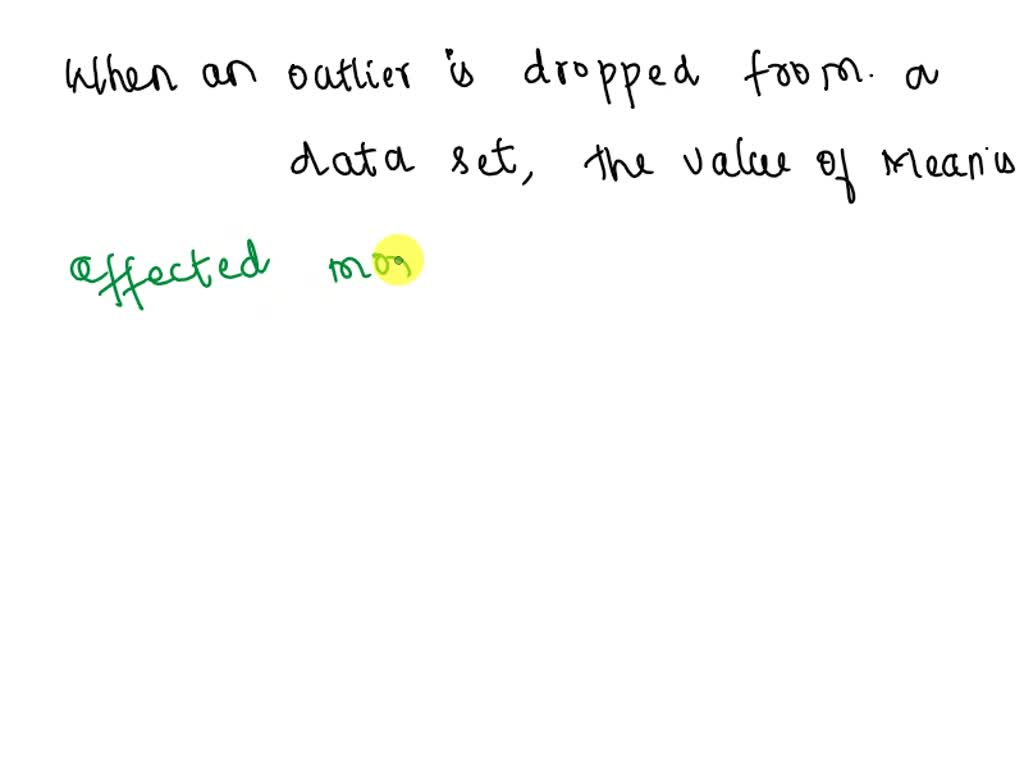 When an outlier is dropped from. a
data set, the value of Mean is
affected mos